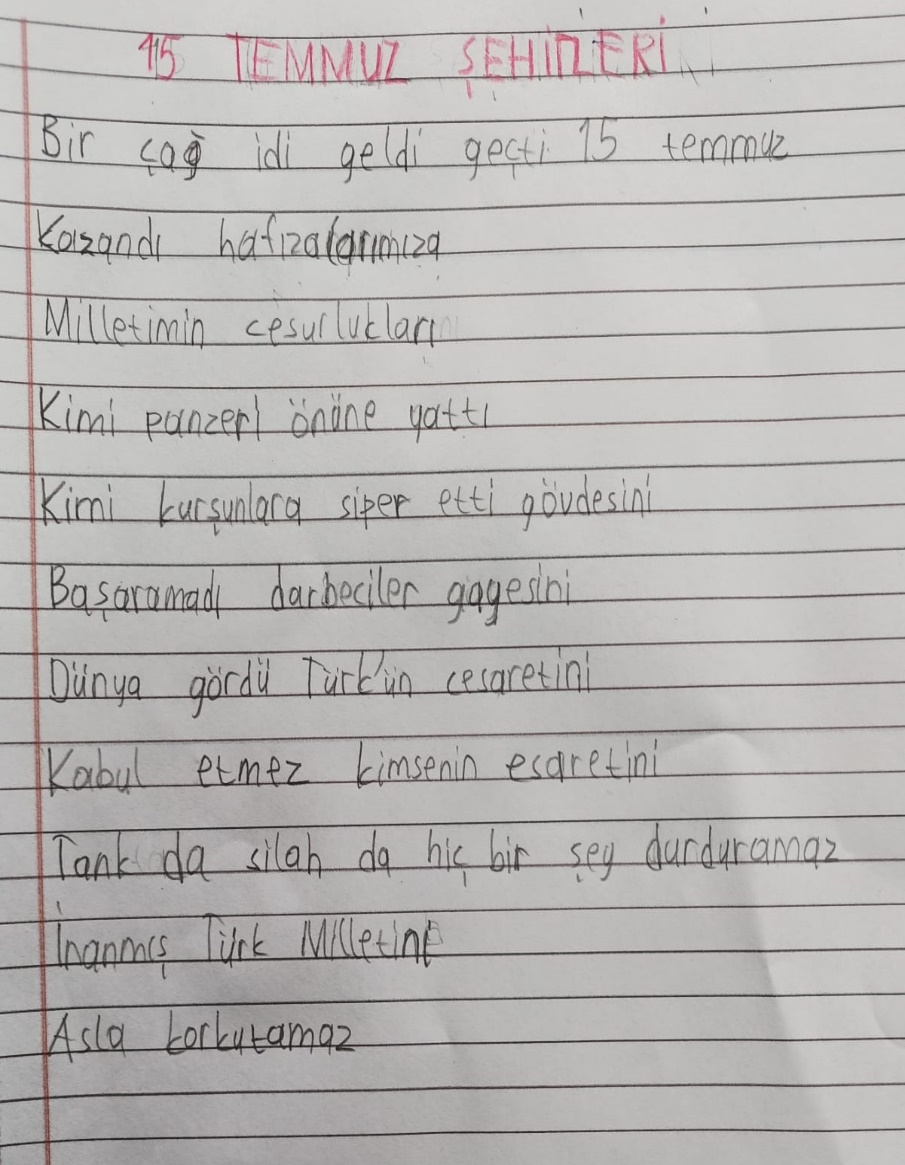 15 TEMMUZ ŞEHİTLERİ
Bir çağ idi geldi geçti 15 temmuz
Kazandı hafızalarımıza
Milletimin cesurlukları
Kimi panzerl önüne yattı
Kimi kurşunlara siper etti gövdesini
Başaramadı darbeciler gayesini
Dünya gördü Türk'ün cesaretini
Kabul etmez kimsenin esaretini
Tank da silah da hiç bir şey durduramaz
İnanmış Türk Milletine
Asla korkutamaz